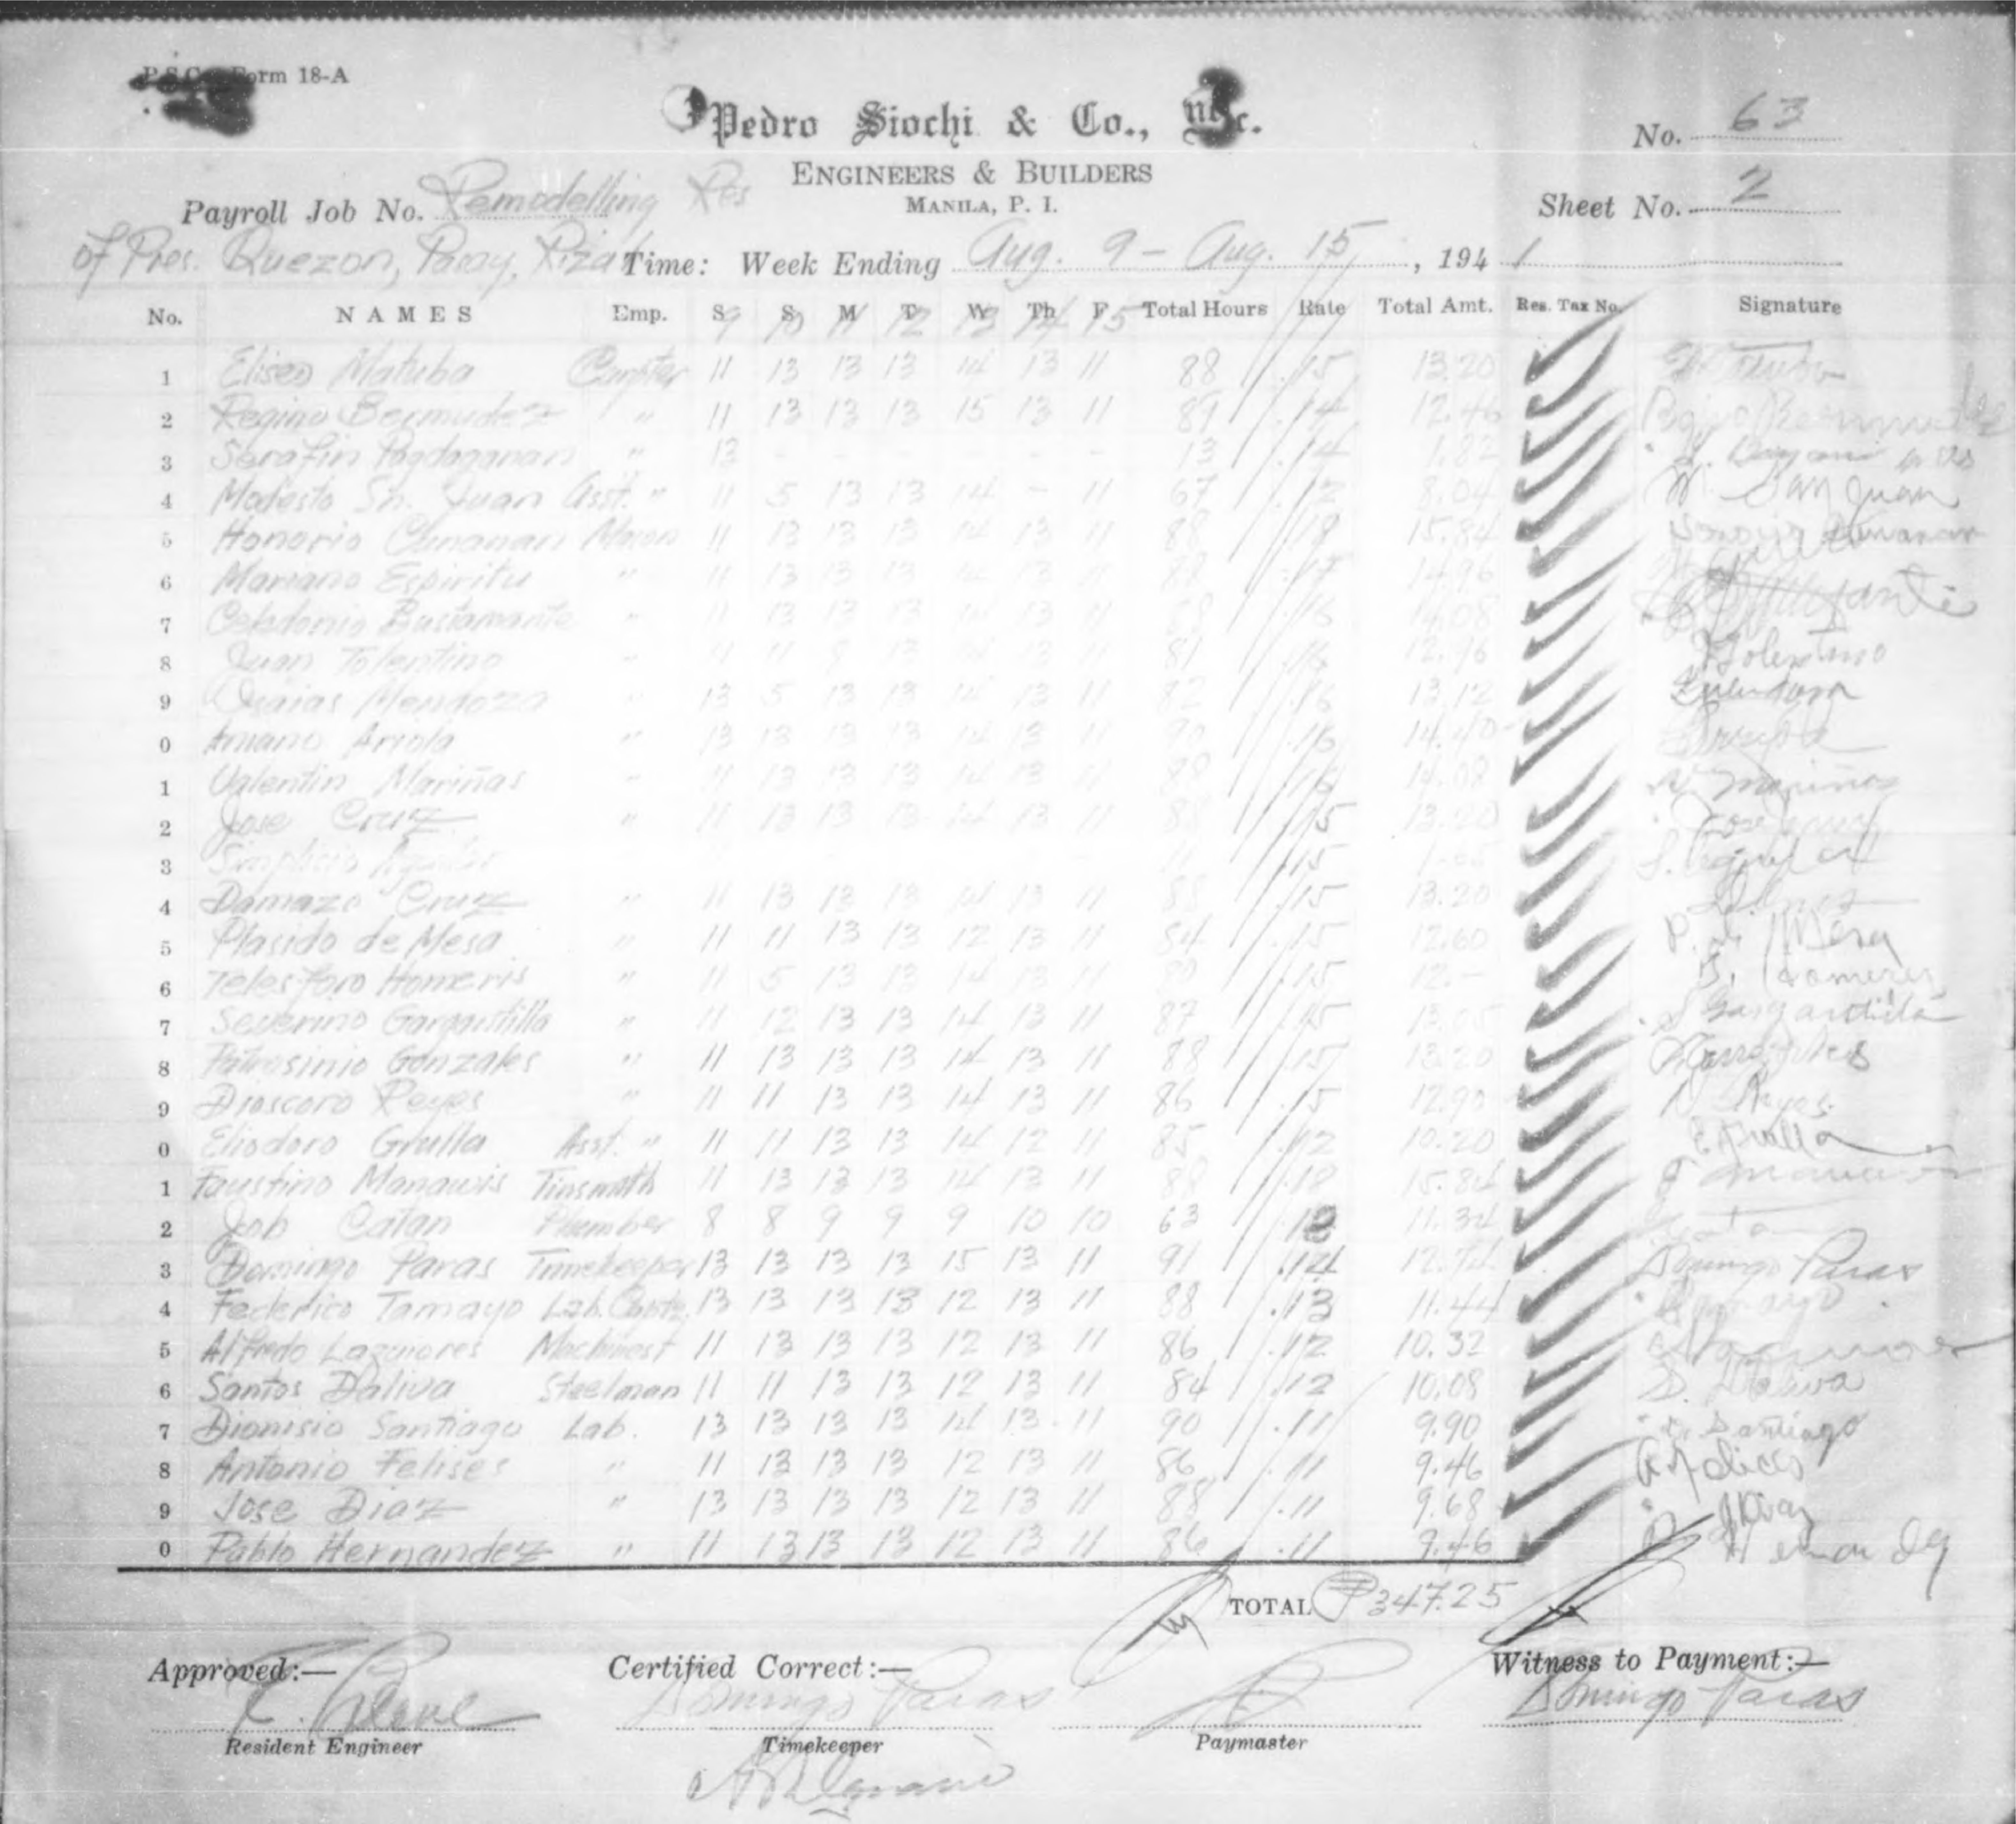 P.S.C. Form 18-A
Pedro Siochi & Co., Inc.
No. 63
ENGINEERS & BUILDERS
MANILA, P. I.
Payroll Job No. Remodelling Res
Sheet No. 2
of Pres. Quezon, Pasay, Rizal
Time: Week Ending Aug. 9 - Aug. 15, 1941
No. NAMES Emp. S S M T W Th F Total Hours Rate Total Amt. Res. Tax No. Signature
9 10 11 12 13 14 15
1 Eliseo Matuba Carpter 11 13 13 13 14 13 11 88 .15 13.20
2 Regino Bermudez " 11 13 13 13 15 13 11 89 .14 12.46
3 Serafin Pagdaganan " 13 - - - - - - 13 .14 1.82
4 Modesto Sn. Juan Asst. " 11 5 13 13 14 - 11 67 .12 8.04 M. San Juan
5 Honorio Cunanan Mason 11 13 13 13 14 13 11 88 .18 15.84
6 Mariano Espiritu " 11 13 13 13 14 13 11 88 .17 14.96
7 Celedonio Bustamante " 11 13 13 13 14 13 11 88 .16 14.08
8 Juan Tolentino " 11 11 8 13 14 13 11 81 .16 12.96 J Tolentino
9 Ysaias Mendoza " 13 5 13 13 14 13 11 82 .16 13.12
0 Amano Arriola " 13 13 13 13 14 13 11 90 .16 14.40
1 Valentin Mariñas " 11 13 13 13 14 13 11 88 .16 14.08 V. Mariñas
2 Jose Cruz " 11 13 13 13 14 13 11 88 .15 13.20 Jose Cruz
3 Simplicio 11 - - - - - - 11 .15 1.65
4 Damazo Cruz " 11 13 13 13 14 13 11 88 .15 13.20
5 Plasido de Mesa " 11 11 13 13 12 13 11 84 .15 12.60 P. de Mesa
6 Telesforo Homeris " 11 5 13 13 14 13 11 80 .15 12.-
7 Severino Gargantilla " 11 12 13 13 14 13 11 87 .15 13.05 S Gargantilla
8 Patrosinio Gonzales " 11 13 13 13 14 13 11 88 .15 13.20
9 Dioscoro Reyes " 11 11 13 13 14 13 11 86 .15 12.90 D. Reyes
0 Eliodoro Grulla Asst. " 11 11 13 13 14 12 11 85 .12 10.20 E. Grulla
1 Faustino Manawis Tinsmith 11 13 13 13 14 13 11 88 .18 15.84
2 Job Catan Plumber 8 8 9 9 9 10 10 63 .18 11.34
3 Domingo Paras Timekeeper 13 13 13 13 15 13 11 91 .14 12.74 Domingo Paras
4 Federico Tamayo Lab. Capta. 13 13 13 13 12 13 11 88 .13 11.44
5 Alfredo Laquiores Machinest 11 13 13 13 12 13 11 86 .12 10.32
6 Santos Daliva Steelman 11 11 13 13 12 13 11 84 .12 10.08 S. Daliva
7 Dionisio Santiago Lab. 13 13 13 13 14 13 11 90 .11 9.90 D. Santiago
8 Antonio Felises " 11 13 13 13 12 13 11 86 .11 9.46
9 Jose Diaz " 13 13 13 13 12 13 11 88 .11 9.68 J Diaz
0 Pablo Hernandez " 11 13 13 13 12 13 11 86 .11 9.46
TOTAL ₱347.25
Approved:— Certified Correct:— Witness to Payment:—
Domingo Paras Domingo Paras
Resident Engineer Timekeeper Paymaster